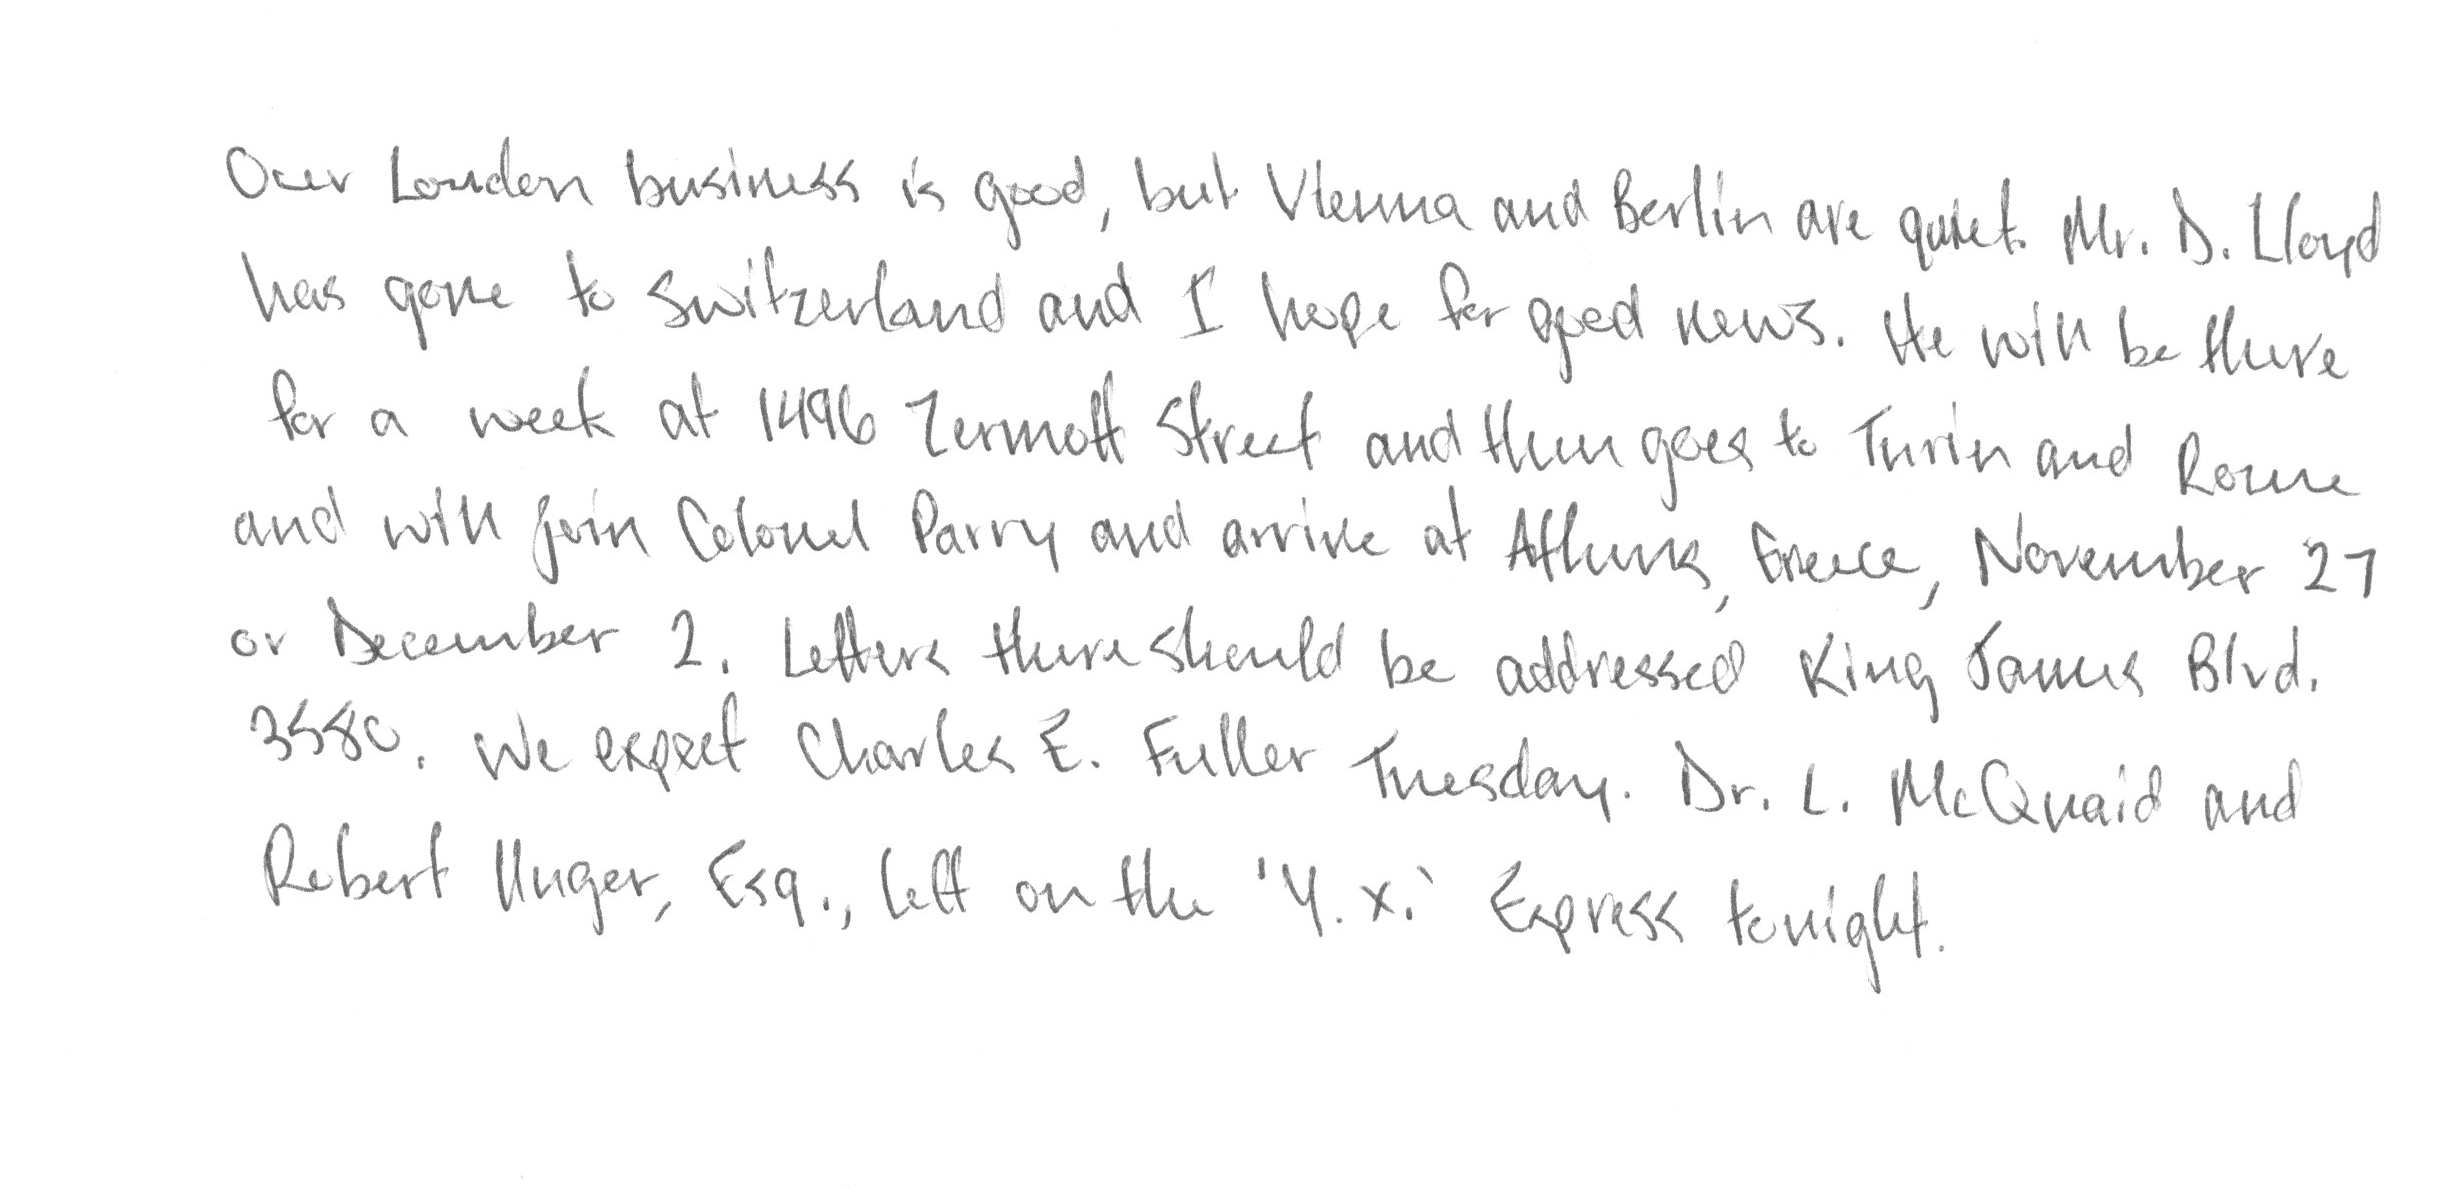 Our London business is good, but Vienna and Berlin are quiet. Mr. D. Lloyd
has gone to Switzerland and I hope for good news. He will be there
for a week at 1496 Zermott Street and then goes to Turin and Rome
and will join Colonel Parry and arrive at Athens, Greece, November 27
or December 2. Letters there should be addressed King James Blvd.
3580. We expect Charles E. Fuller Tuesday. Dr. L. McQuaid and
Robert Unger, Esq., left on the 'Y.X.' Express tonight.